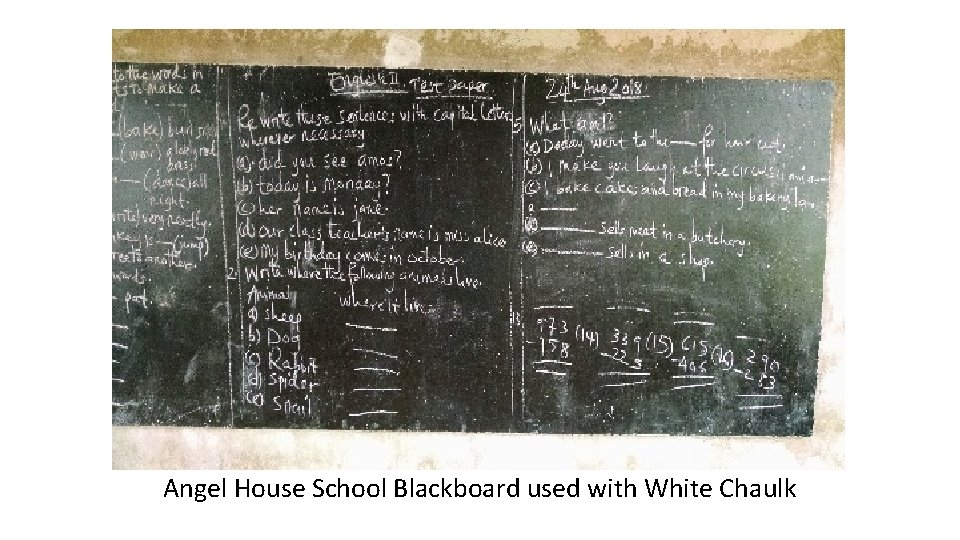 to the words in
to make a
(bake) bun
dress.
(dance) all
night.
(write) very neatly.
(jump)
another
words.
pot.
English II Test paper 24th Aug 2018
Re write these sentences with capital letters
wherever necessary
(a) did you see amos?
(b) today is monday?
(c) her name is jane.
(d) our class teacher's name is miss alice
(e) my birthday comes in october.
2. Write where the following animals live.
Animal where it lives
a) sheep
b) Dog
(c) Rabbit
(d) Spider
(e) Snail
What am I?
(a) Daddy went to the for hair cut.
(b) I make you laugh at the circus, I am a
(c) I bake cakes and bread in my bakery I am
a
(d) sells meat in a butchery.
(e) sells in a shop.
13. 973 (14) 339 (15) 615 (16) 290
- 158 - 225 - 405 - 253
Angel House School Blackboard used with White Chaulk